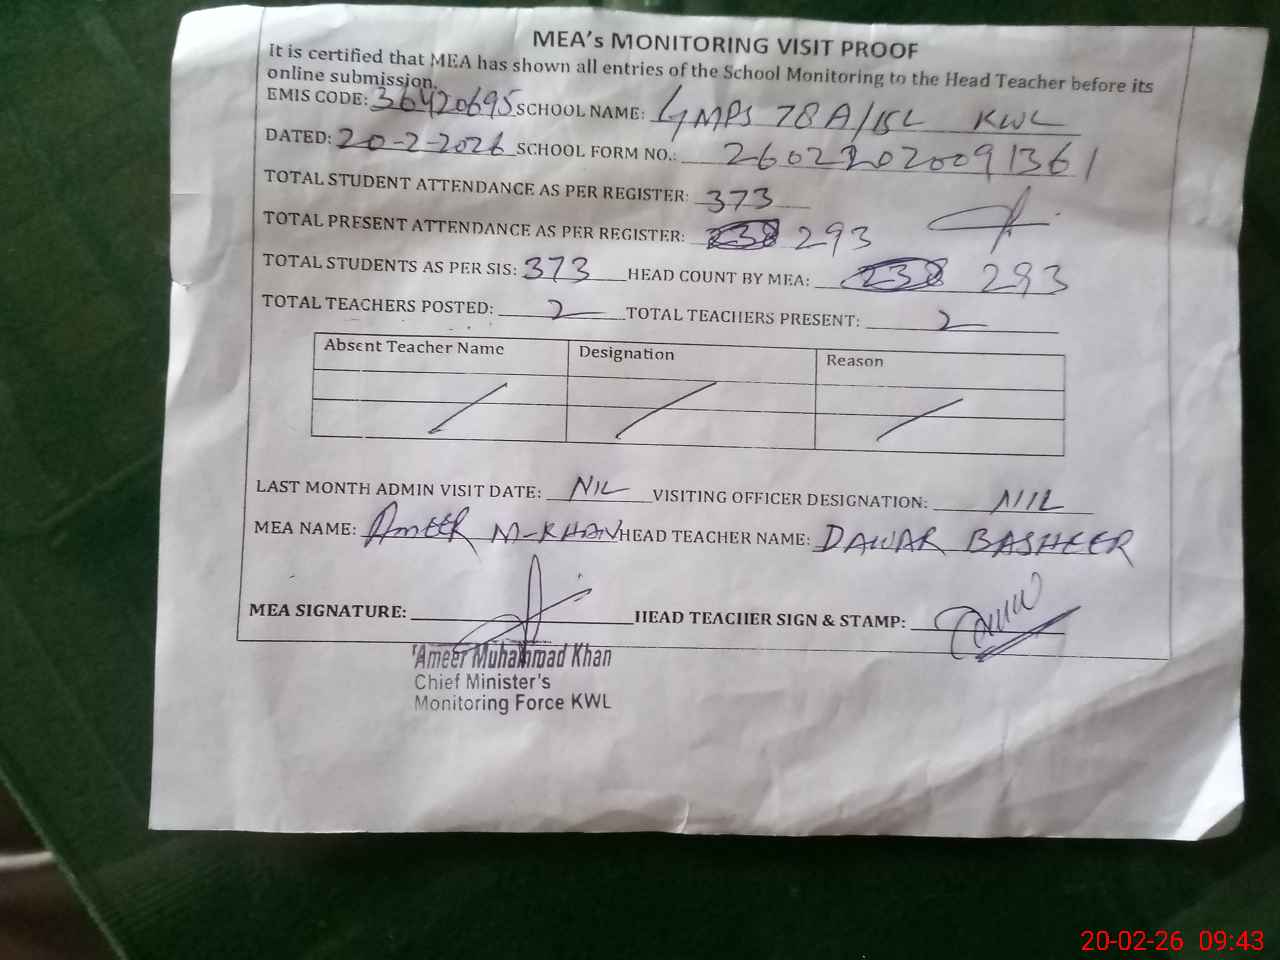 MEA's MONITORING VISIT PROOF
It is certified that MEA has shown all entries of the School Monitoring to the Head Teacher before its
online submission.
EMIS CODE: 36420695 SCHOOL NAME: GMPS 78A/15L KWL
DATED: 20-2-2026 SCHOOL FORM NO.: 26022020091361
TOTAL STUDENT ATTENDANCE AS PER REGISTER: 373
TOTAL PRESENT ATTENDANCE AS PER REGISTER: 293
TOTAL STUDENTS AS PER SIS: 373 HEAD COUNT BY MEA: 293
TOTAL TEACHERS POSTED: 2 TOTAL TEACHERS PRESENT: 2
Absent Teacher Name Designation Reason
LAST MONTH ADMIN VISIT DATE: NIL VISITING OFFICER DESIGNATION: NIIL
MEA NAME: AMEER M-KHAN HEAD TEACHER NAME: DAWAR BASHEER
MEA SIGNATURE: HEAD TEACHER SIGN & STAMP:
Ameer Muhammad Khan
Chief Minister's
Monitoring Force KWL
20-02-26 09:43